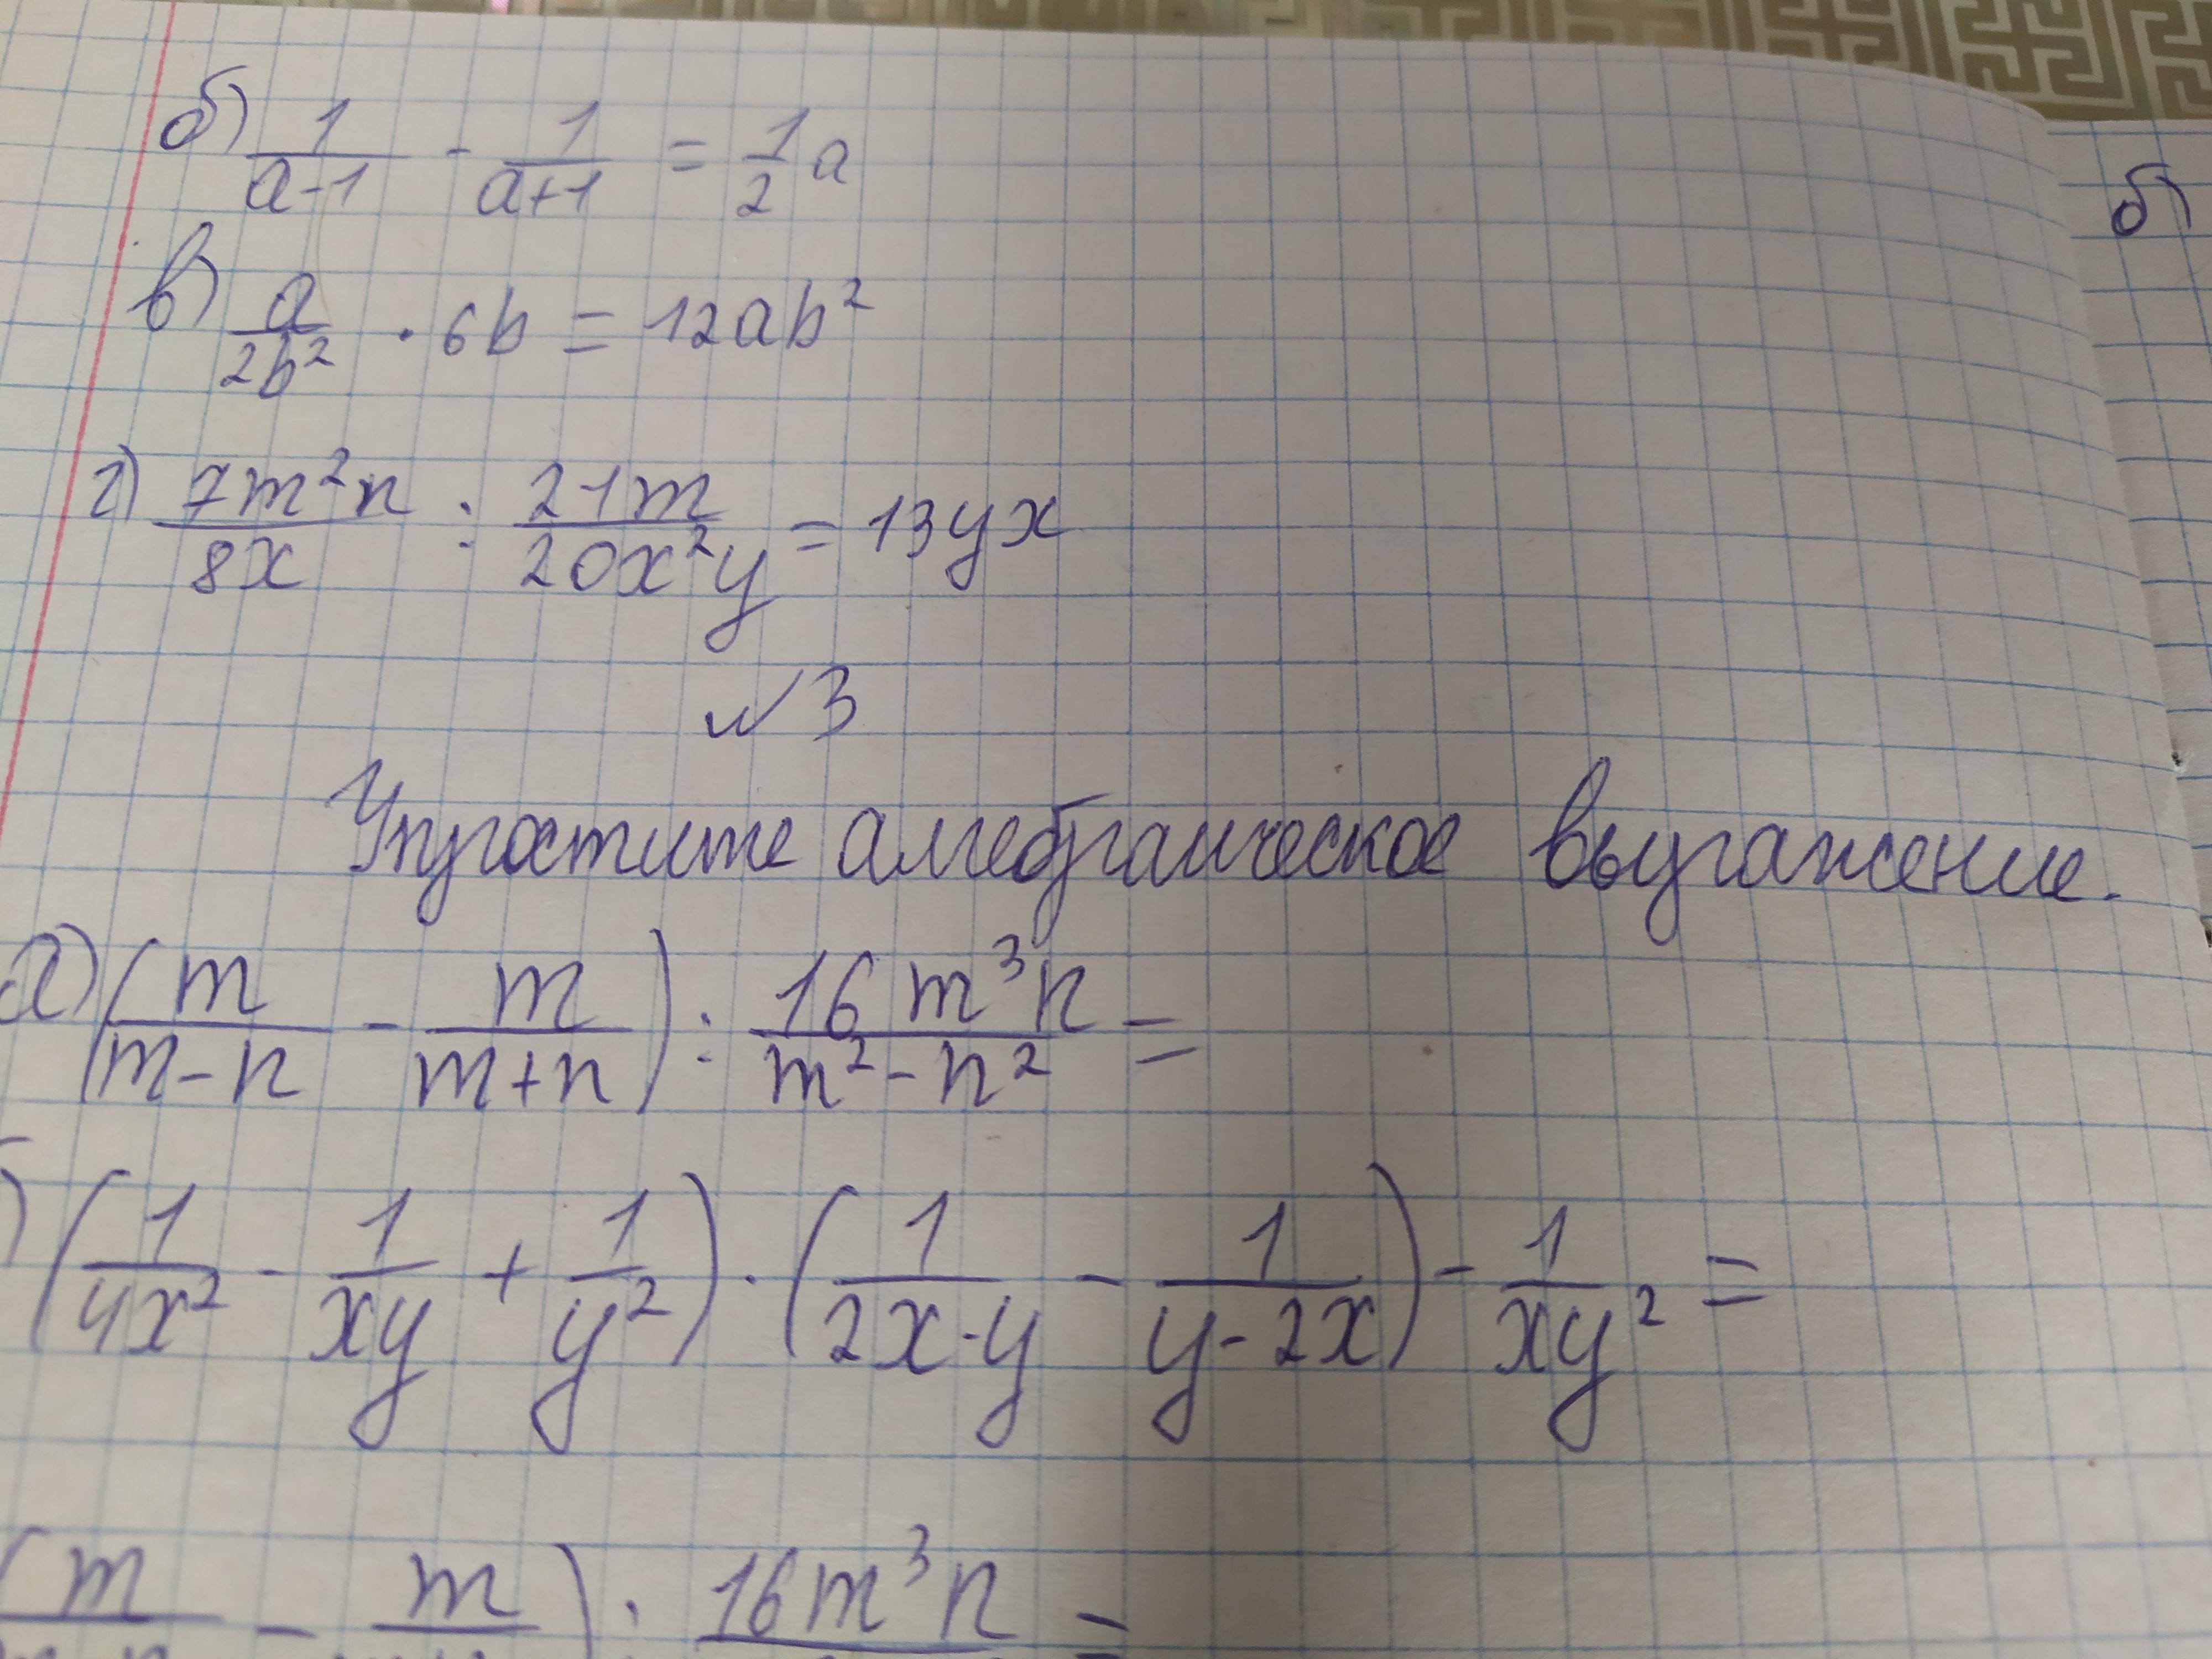 б) 1/(a-1) - 1/(a+1) = 1/2 a
б)
в) a/(2b²) · 6b = 12ab²
г) 7m²n/(8x) : 21m/(20x²y) = 13yx
№3
Упростите алгебраическое выражение.
а) (m/(m-n) - m/(m+n)) : 16m³n/(m²-n²) =
) (1/(4x²) - 1/(xy) + 1/y²) · (1/(2x-y) - 1/(y-2x)) - 1/(xy²) =
(m/ - m/) : 16m³n/ =